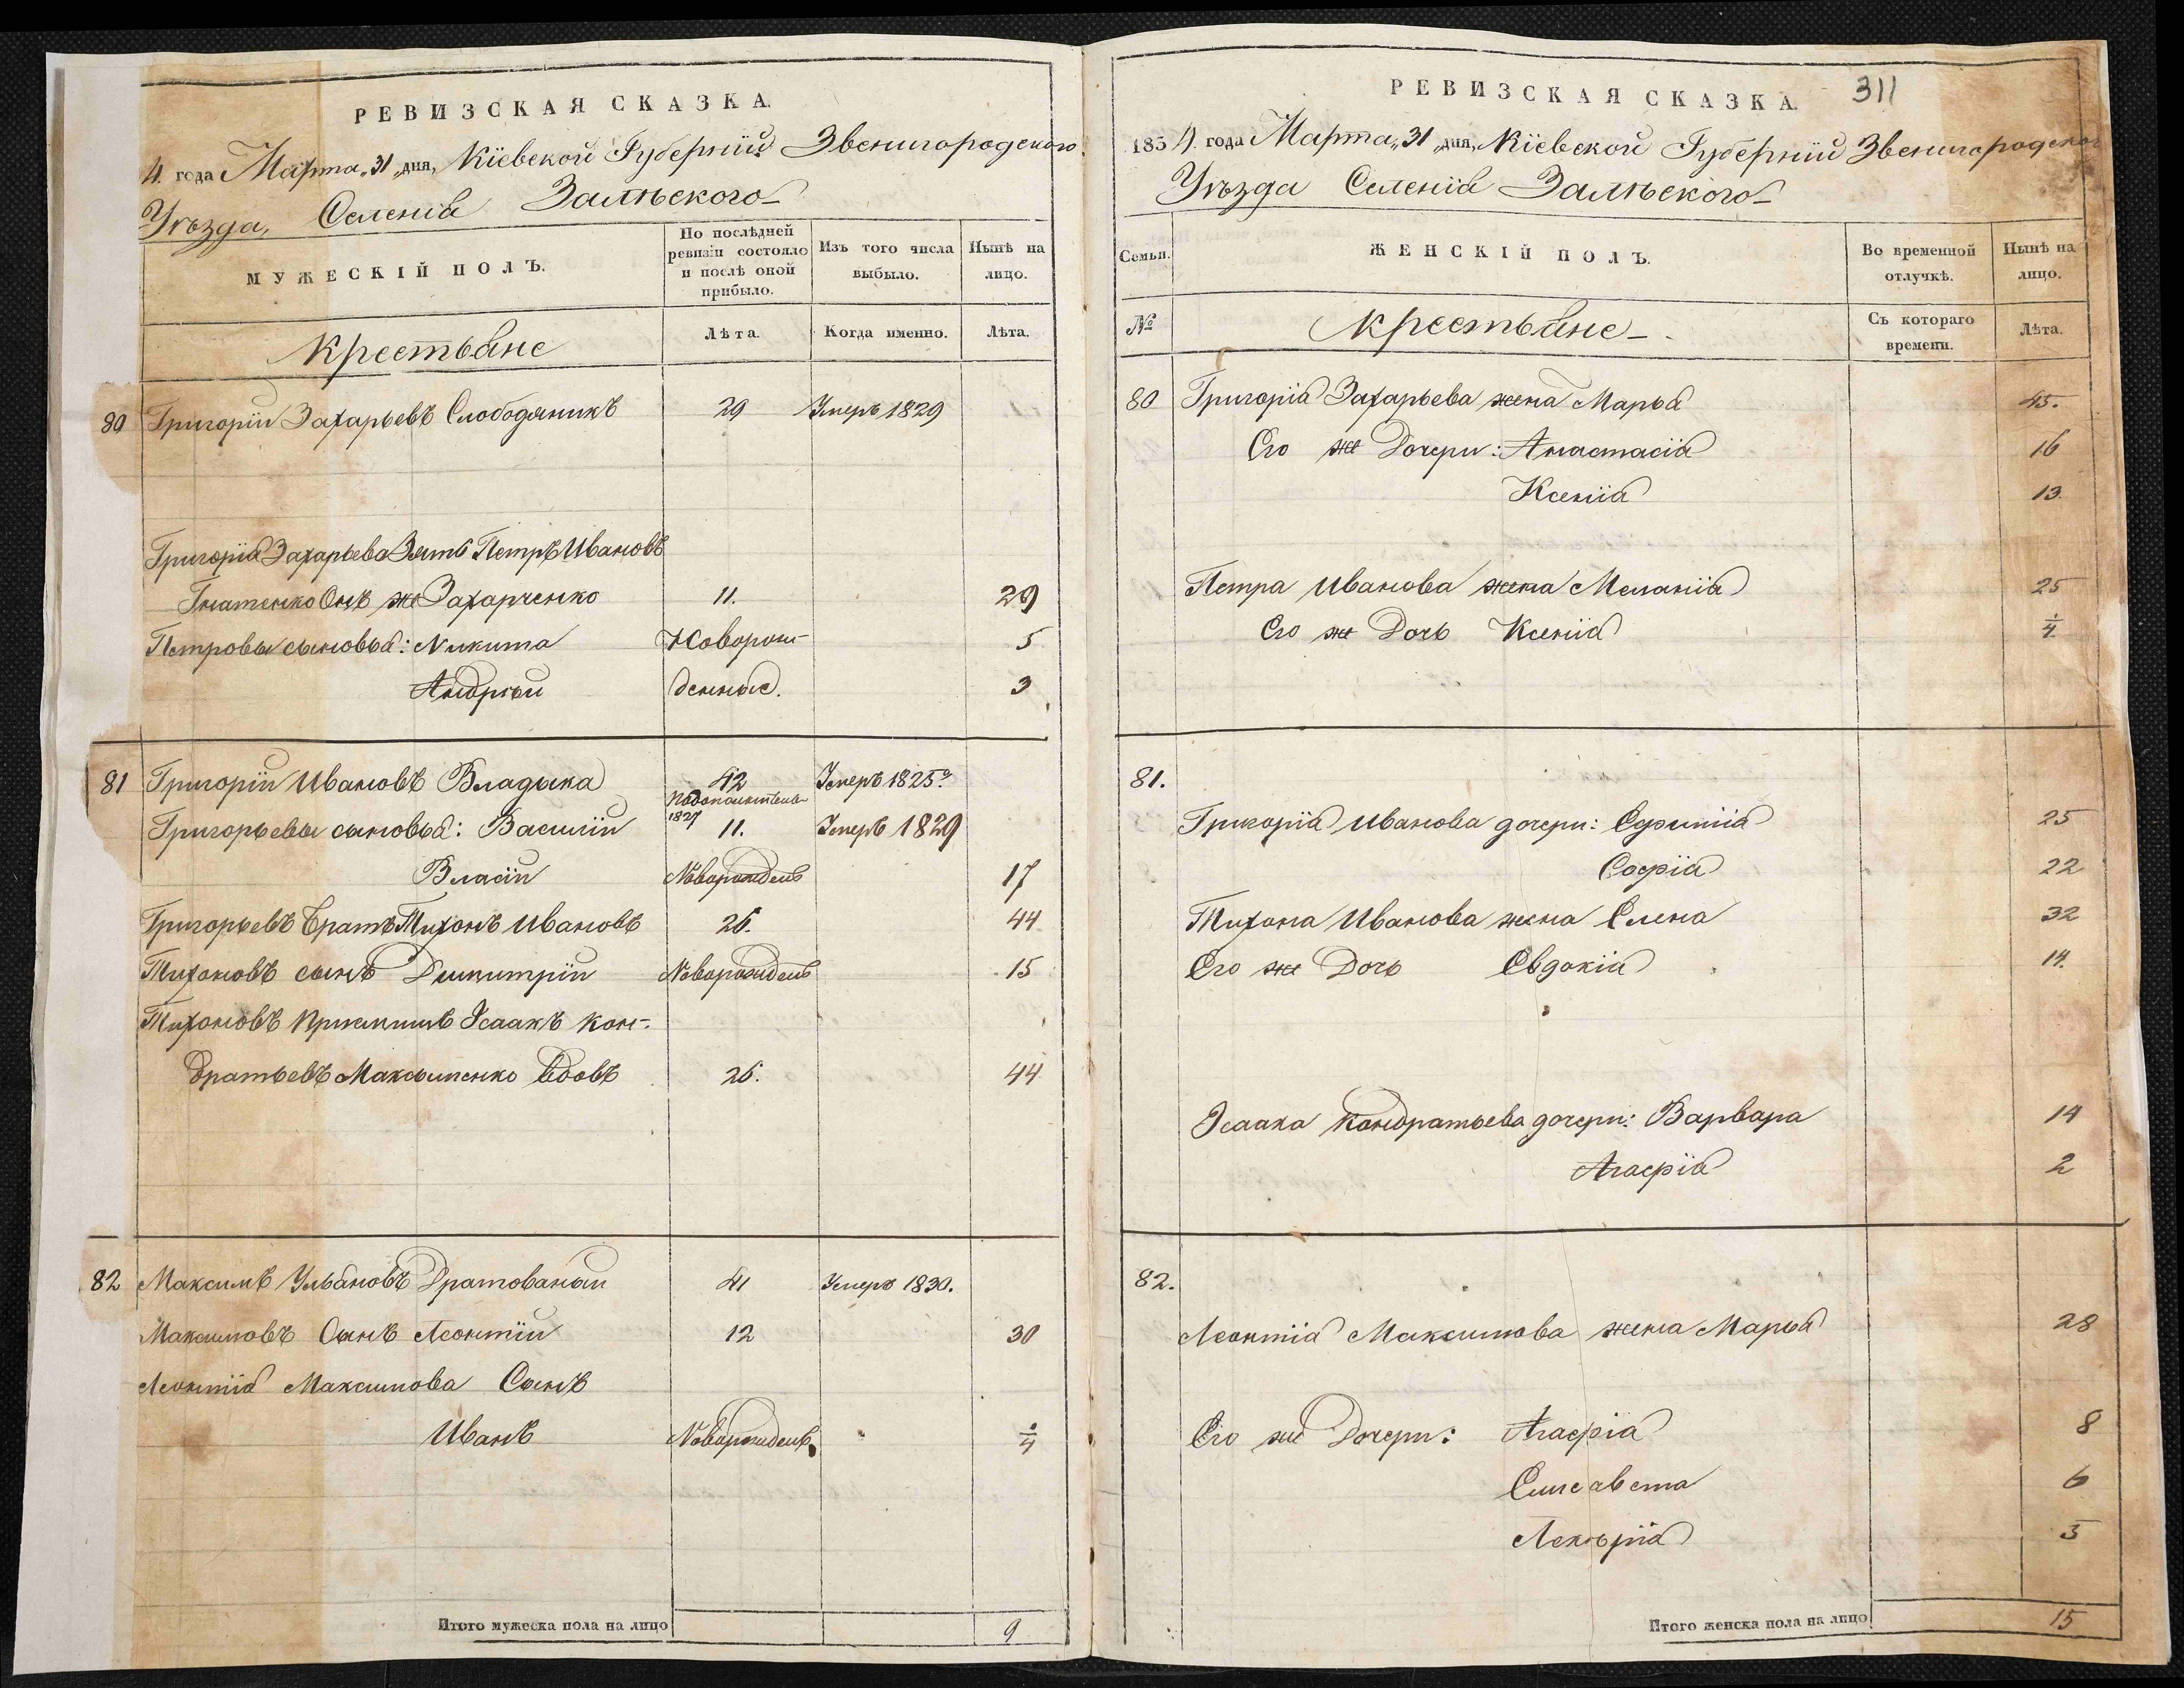 РЕВИЗСКАЯ СКАЗКА.
4. года Марта „31 „дня, Кіевской Губерніи Звенигородскаго
Уѣзда, Селенія Залѣсскаго
МУЖЕСКІЙ ПОЛЪ.
По послѣдней ревизіи состояло и послѣ оной прибыло.
Изъ того числа выбыло.
Нынѣ на лицо.
Крестьяне
Лѣта.
Когда именно.
Лѣта.
80 Григорій Захарьевъ Слободяникъ 29 Умеръ 1829
Григорія Захарьева Зять Петръ Ивановъ
Гнатенко Онъ же Захарченко 11. 29
Петровы сыновья: Никита Новорож- 5
Андрѣй денные. 3
81 Григорій Ивановъ Владыка 42 Умеръ 1825г
1827
Григорьевы сыновья: Василій 11. Умеръ 1829
Власій Новорожденъ 17
Григорьевъ братъ Тихонъ Ивановъ 26. 44
Тихоновъ сынъ Димитрій Новорожденъ 15
Тихоновъ пріемышъ Исаакъ Кон-
дратьевъ Максименко вдовъ 26. 44
82 Максимъ Ульяновъ Дратованый 41 Умеръ 1830.
Максимовъ Сынъ Леонтій 12 30
Леонтія Максимова Сынъ
Иванъ Новорожденъ 1/4
Итого мужеска пола на лицо 9
РЕВИЗСКАЯ СКАЗКА. 311
1854. года Марта „31 „дня, Кіевской Губерніи Звенигородскаго
Уѣзда Селенія Залѣсскаго
Семьи.
ЖЕНСКІЙ ПОЛЪ.
Во временной отлучкѣ.
Нынѣ на лицо.
№
Крестьяне
Съ котораго времени.
Лѣта.
80 Григорія Захарьева жена Марья 45.
Его же Дочери: Анастасія 16
Ксенія 13.
Петра Иванова жена Меланія 25
Его же Дочь Ксенія 1/4
81.
Григорія Иванова дочери: Ефимія 25
Софія 22
Тихона Иванова жена Елена 32
Его же Дочь Евдокія 14.
Исаака Кондратьева дочери: Варвара 14
Агафія 2
82.
Леонтія Максимова жена Марья 28
Его же Дочери: Агафія 8
Елисавета 6
3
Итого женска пола на лицо 15